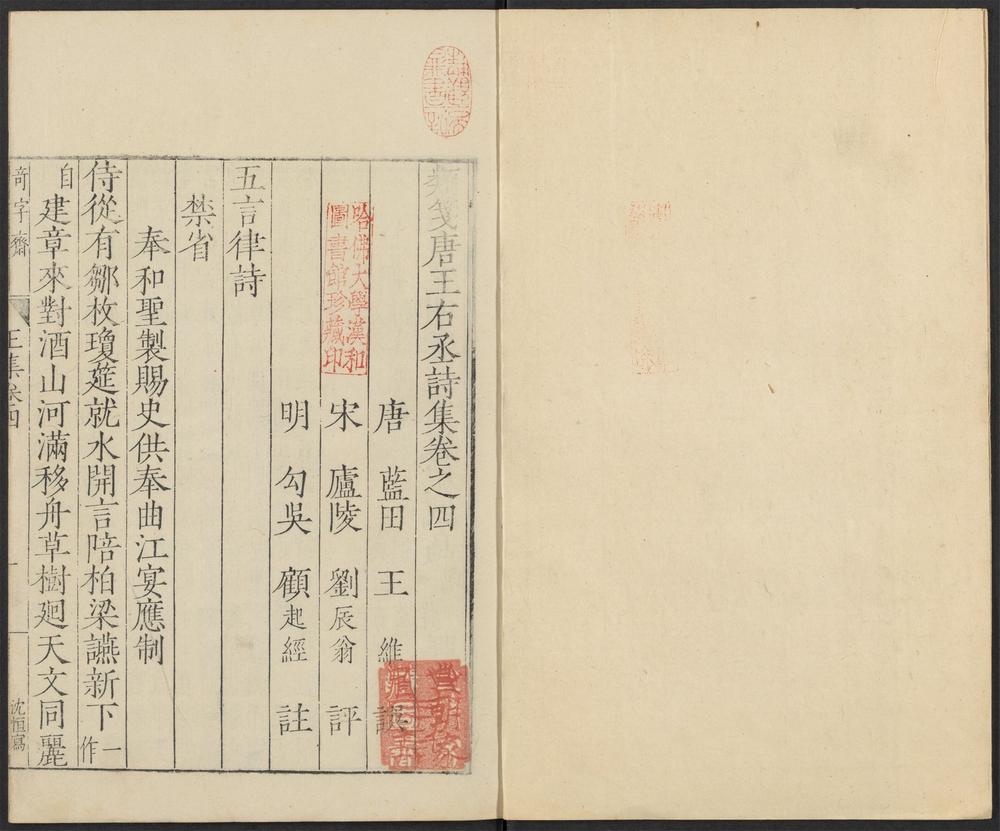 類箋唐王右丞詩集卷之四
唐 藍田 王 維 譔
宋 廬陵 劉辰翁 評
明 勾吳 顧起經 註
五言律詩
禁省
奉和聖製賜史供奉曲江宴應制
侍從有鄒枚瓊筵就水開言陪柏梁讌新下一作
自建章來對酒山河滿移舟草樹廻天文同麗
奇字齋
王集卷四
一
沈恒寫
哈佛大學漢和
圖書館珍藏印